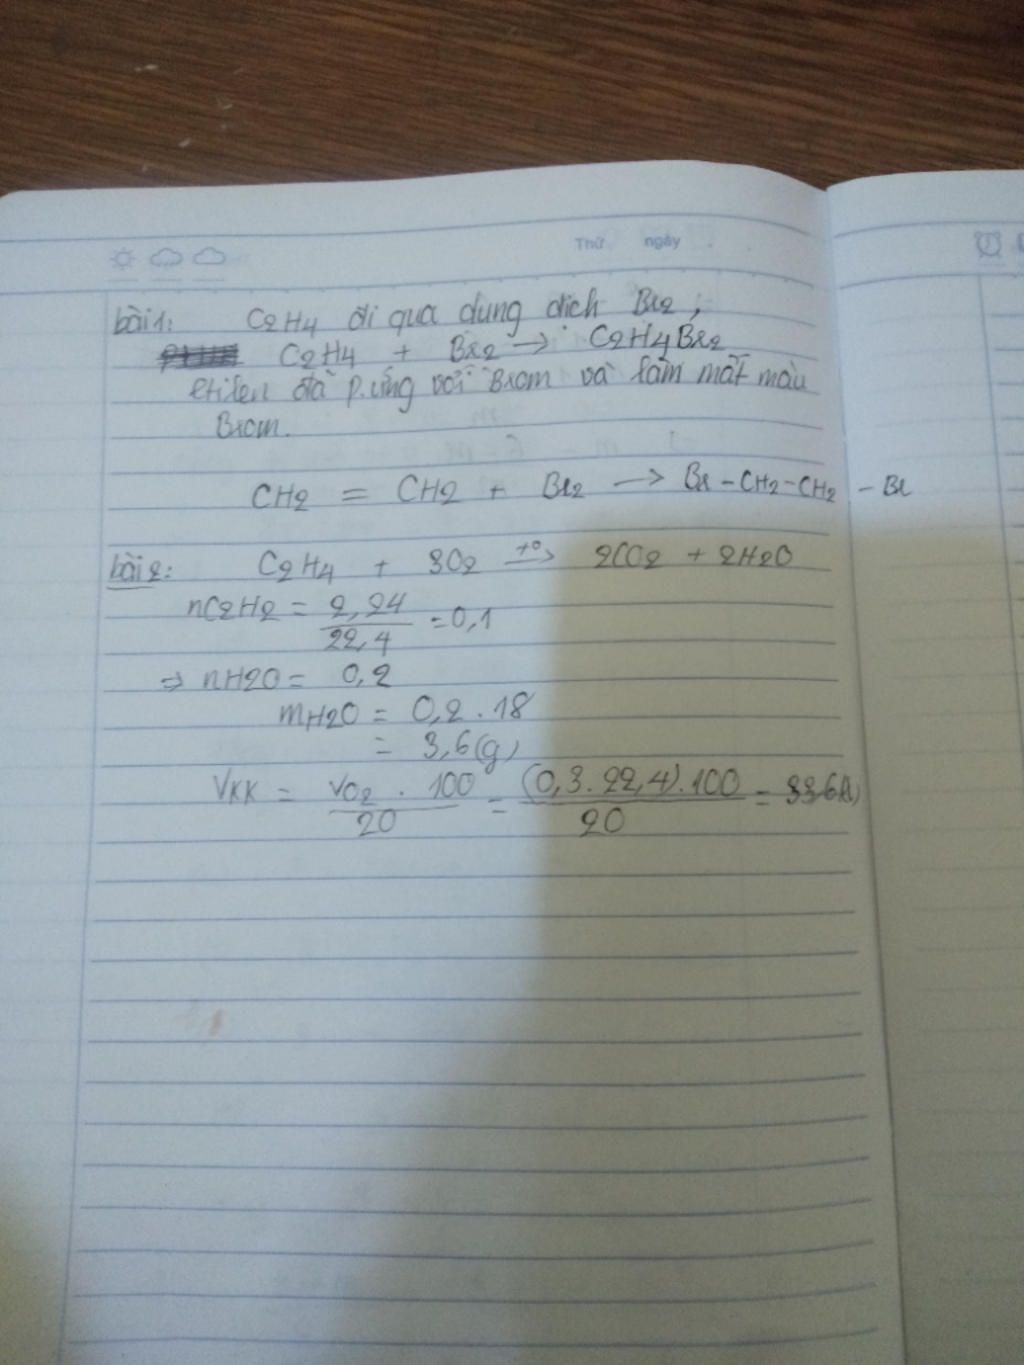 Thứ ngày
bài 1: C2H4 đi qua dung dịch Br2,
C2H4 + Br2 → C2H4Br2
etilen đã p.ứng với Brom và làm mất màu
Brom.
CH2 = CH2 + Br2 → Br - CH2 - CH2 - Br
bài 2: C2H4 + 3O2 t° → 2CO2 + 2H2O
nC2H2 = 2,24 / 22,4 = 0,1
⇒ nH2O = 0,2
mH2O = 0,2 . 18
= 3,6 (g)
VKK = VO2 . 100 / 20 = (0,3 . 22,4) . 100 / 20 = 33,6 (l)